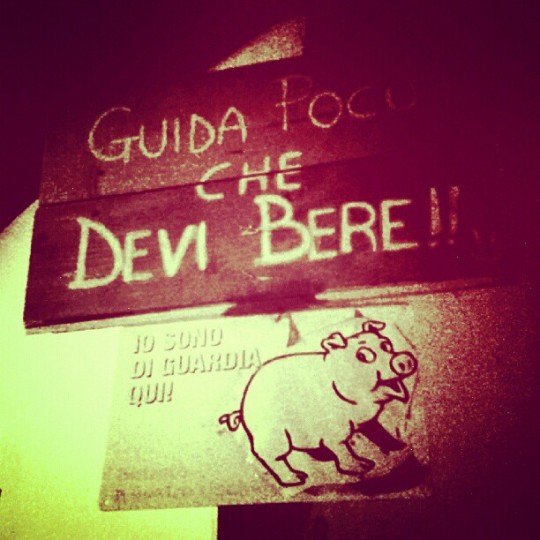 GUIDA POCO
CHE
DEVI BERE!!
IO SONO
DI GUARDIA
QUI!